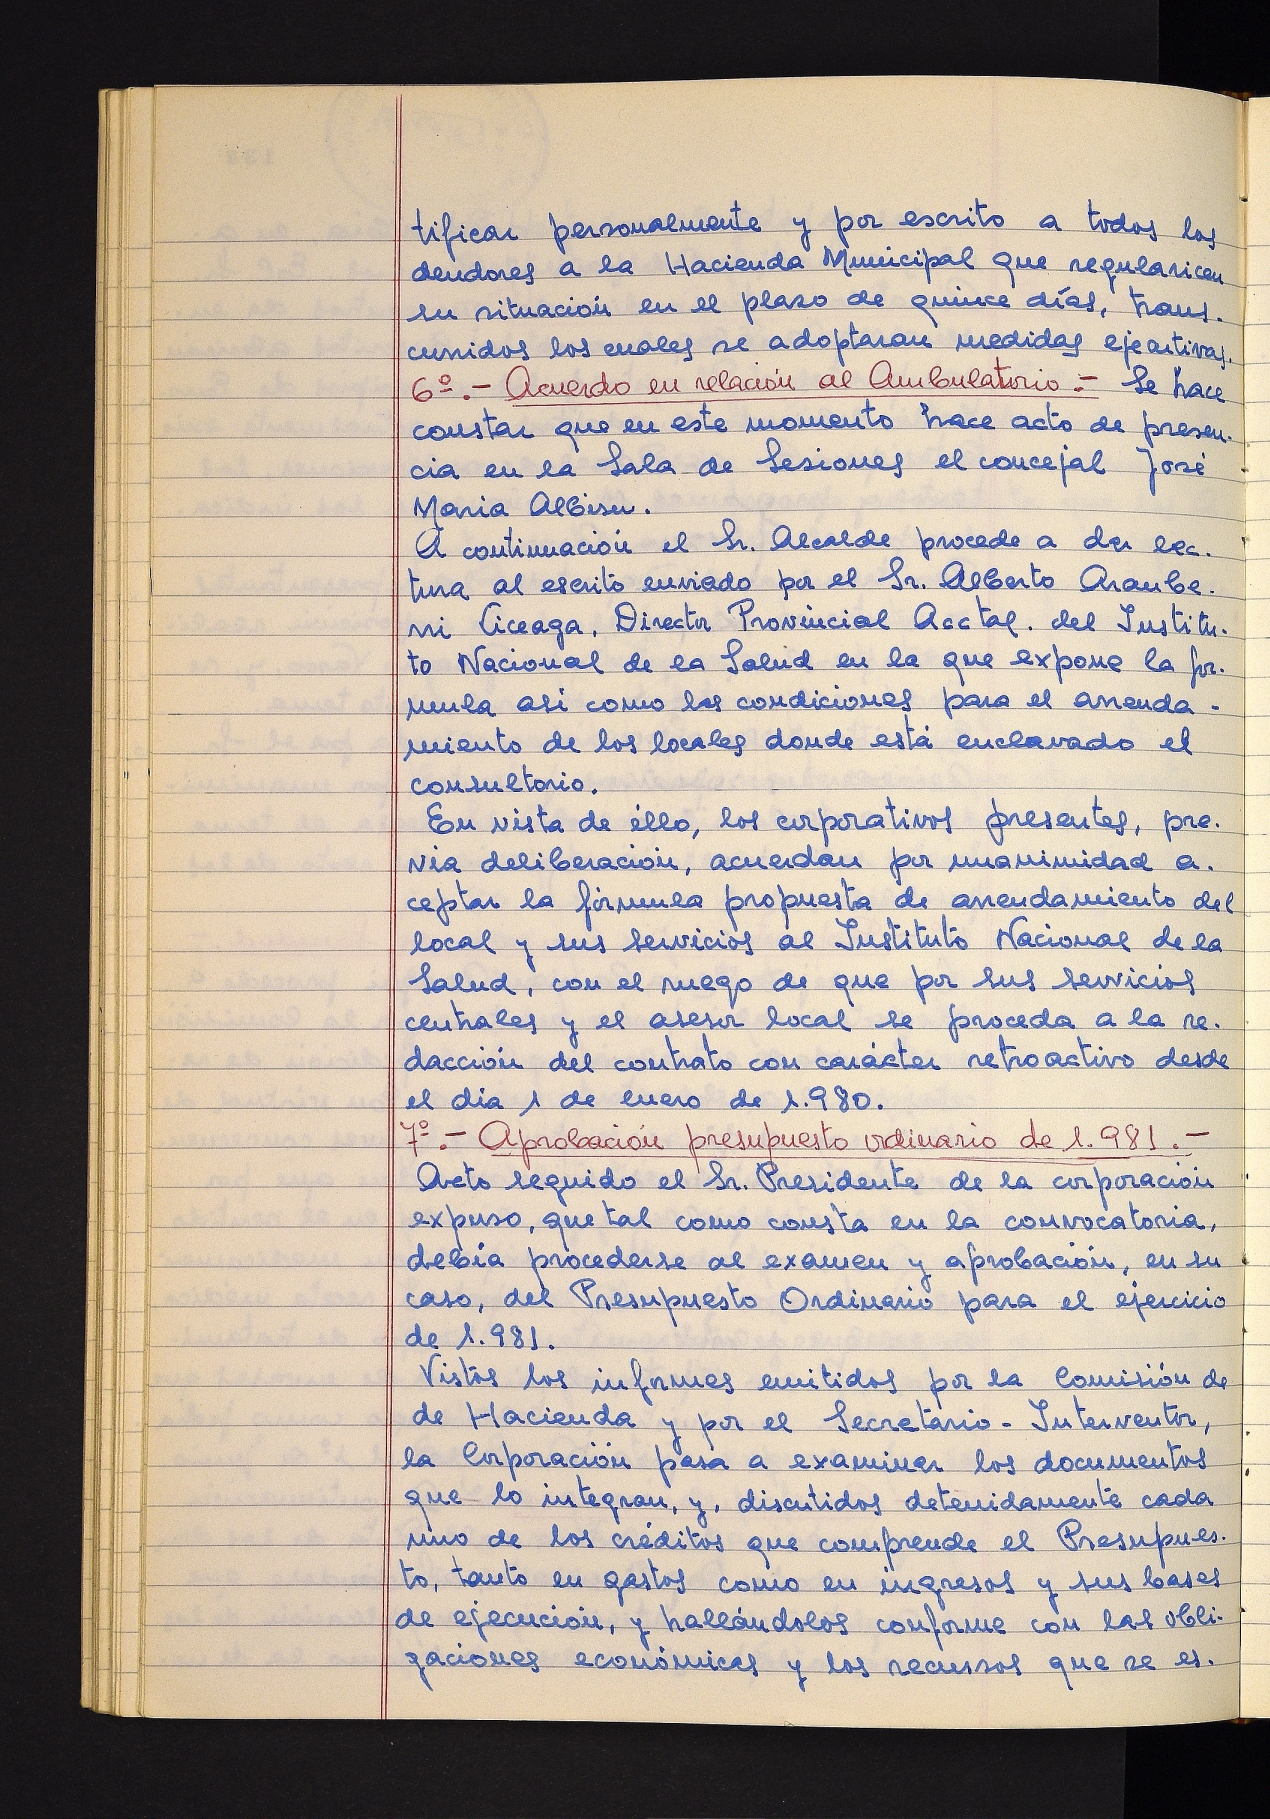 tificar personalmente y por escrito a todos los
deudores a la Hacienda Municipal que regularicen
su situación en el plazo de quince días, trans-
curridos los cuales se adoptarán medidas ejecutivas.
6º.- Acuerdo en relación al Ambulatorio.- Se hace
constar que en este momento hace acto de presen-
cia en la Sala de Sesiones el concejal José
Maria Albisu.
A continuación el Sr. Alcalde procede a dar lec-
tura al escrito enviado por el Sr. Alberto Arambe-
rri Liceaga, Director Provincial Acctal. del Institu-
to Nacional de la Salud en la que expone la fór-
mula asi como las condiciones para el arrenda-
miento de los locales donde está enclavado el
consultorio.
En vista de éllo, los corporativos presentes, pre-
via deliberación, acuerdan por unanimidad a-
ceptar la fórmula propuesta de arrendamiento del
local y sus servicios al Instituto Nacional de la
Salud, con el ruego de que por sus servicios
centrales y el asesor local se proceda a la re-
dacción del contrato con carácter retroactivo desde
el dia 1 de enero de 1.980.
7º.- Aprobación presupuesto ordinario de 1.981.-
Acto seguido el Sr. Presidente de la corporación
expuso, que tal como consta en la convocatoria,
debía procederse al examen y aprobación, en su
caso, del Presupuesto Ordinario para el ejercicio
de 1.981.
Vistos los informes emitidos por la Comisión de
de Hacienda y por el Secretario-Interventor,
la Corporación pasa a examinar los documentos
que lo integran, y, discutidos detenidamente cada
uno de los créditos que comprende el Presupues-
to, tanto en gastos como en ingresos y sus bases
de ejecución, y hallándolos conforme con las obli-
gaciones económicas y los recursos que se es-